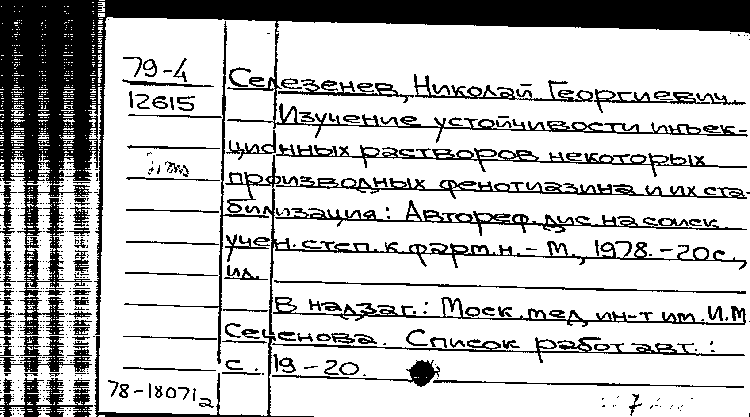 79-4
12615
Селезенев, Николай Георгиевич.
Изучение устойчивости инъек-
ционных растворов некоторых
производных фенотиазина и их ста-
билизация: Автореф. дис. на соиск.
учен. степ. к. фарм. н. - М., 1978. - 20 с.,
ил.
В надзаг.: Моск. мед. ин-т им. И.М.
Сеченова. Список работ авт.:
с. 19-20.
78-18071а